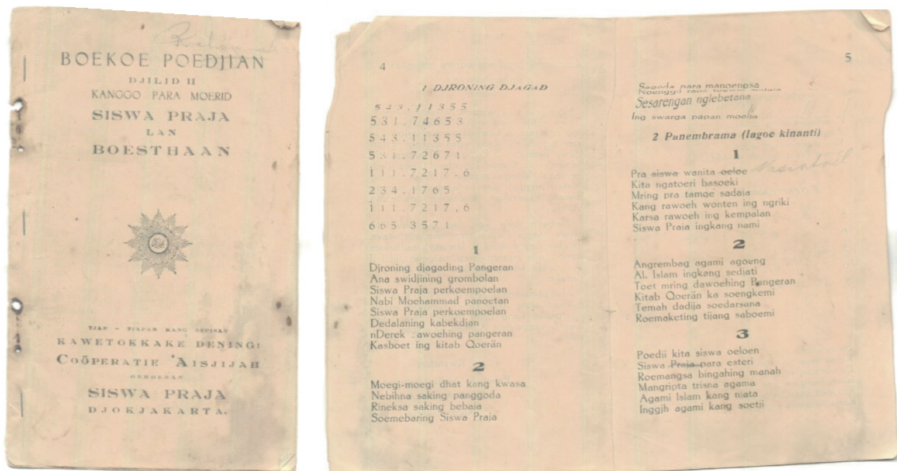 BOEKOE POEDJIAN
DJILID II
KANGGO PARA MOERID
SISWA PRAJA
LAN
BOESTHAAN
KAWETOKKAKE DENING:
COÖPERATIE 'AISJIJAH
SISWA PRAJA
DJOKJAKARTA.
4
1 DJRONING DJAGAD
543.11355
531.74653
543.11355
531.72671
111.7217.6
234.1765
111.7217.6
665.3571
1
Djroning djagading Pangeran
Ana swidjining grombolan
Siswa Praja perkoempoelan
Nabi Mochammad panoetan
Siswa Praja perkoempoelan
Dedalaning kabekdjan
nDerek dawoehing pangeran
Kasboet ing kitab Qoerän
2
Moegi-moegi dhat kang kwasa
Nebihna saking panggoda
Rineksa saking bebaia
Soemebaring Siswa Praja
5
Sagoeda para manoengsa
Sesarengan nglebetana
Ing swarga papan moelia
2 Panembrama (lagoe kinanti)
1
Pra siswa wanita oeloe
Kita ngatoeri basoeki
Mring pra tamoe sadaja
Kang rawoeh wonten ing ngriki
Karsa rawoeh ing kempalan
Siswa Praja ingkang nami
2
Angrembag agami agoeng
Al Islam ingkang sediati
Toet mring dawoehing Pangeran
Kitab Qoerän ka soengkemi
Temah dadija soedarsana
Roemaketing tijang saboemi
3
Poedji kita siswa oeloen
Siswa Praja para esteri
Roemangsa bingahing manah
Mangripta trisna agama
Agami Islam kang niata
Inggih agami kang soetji